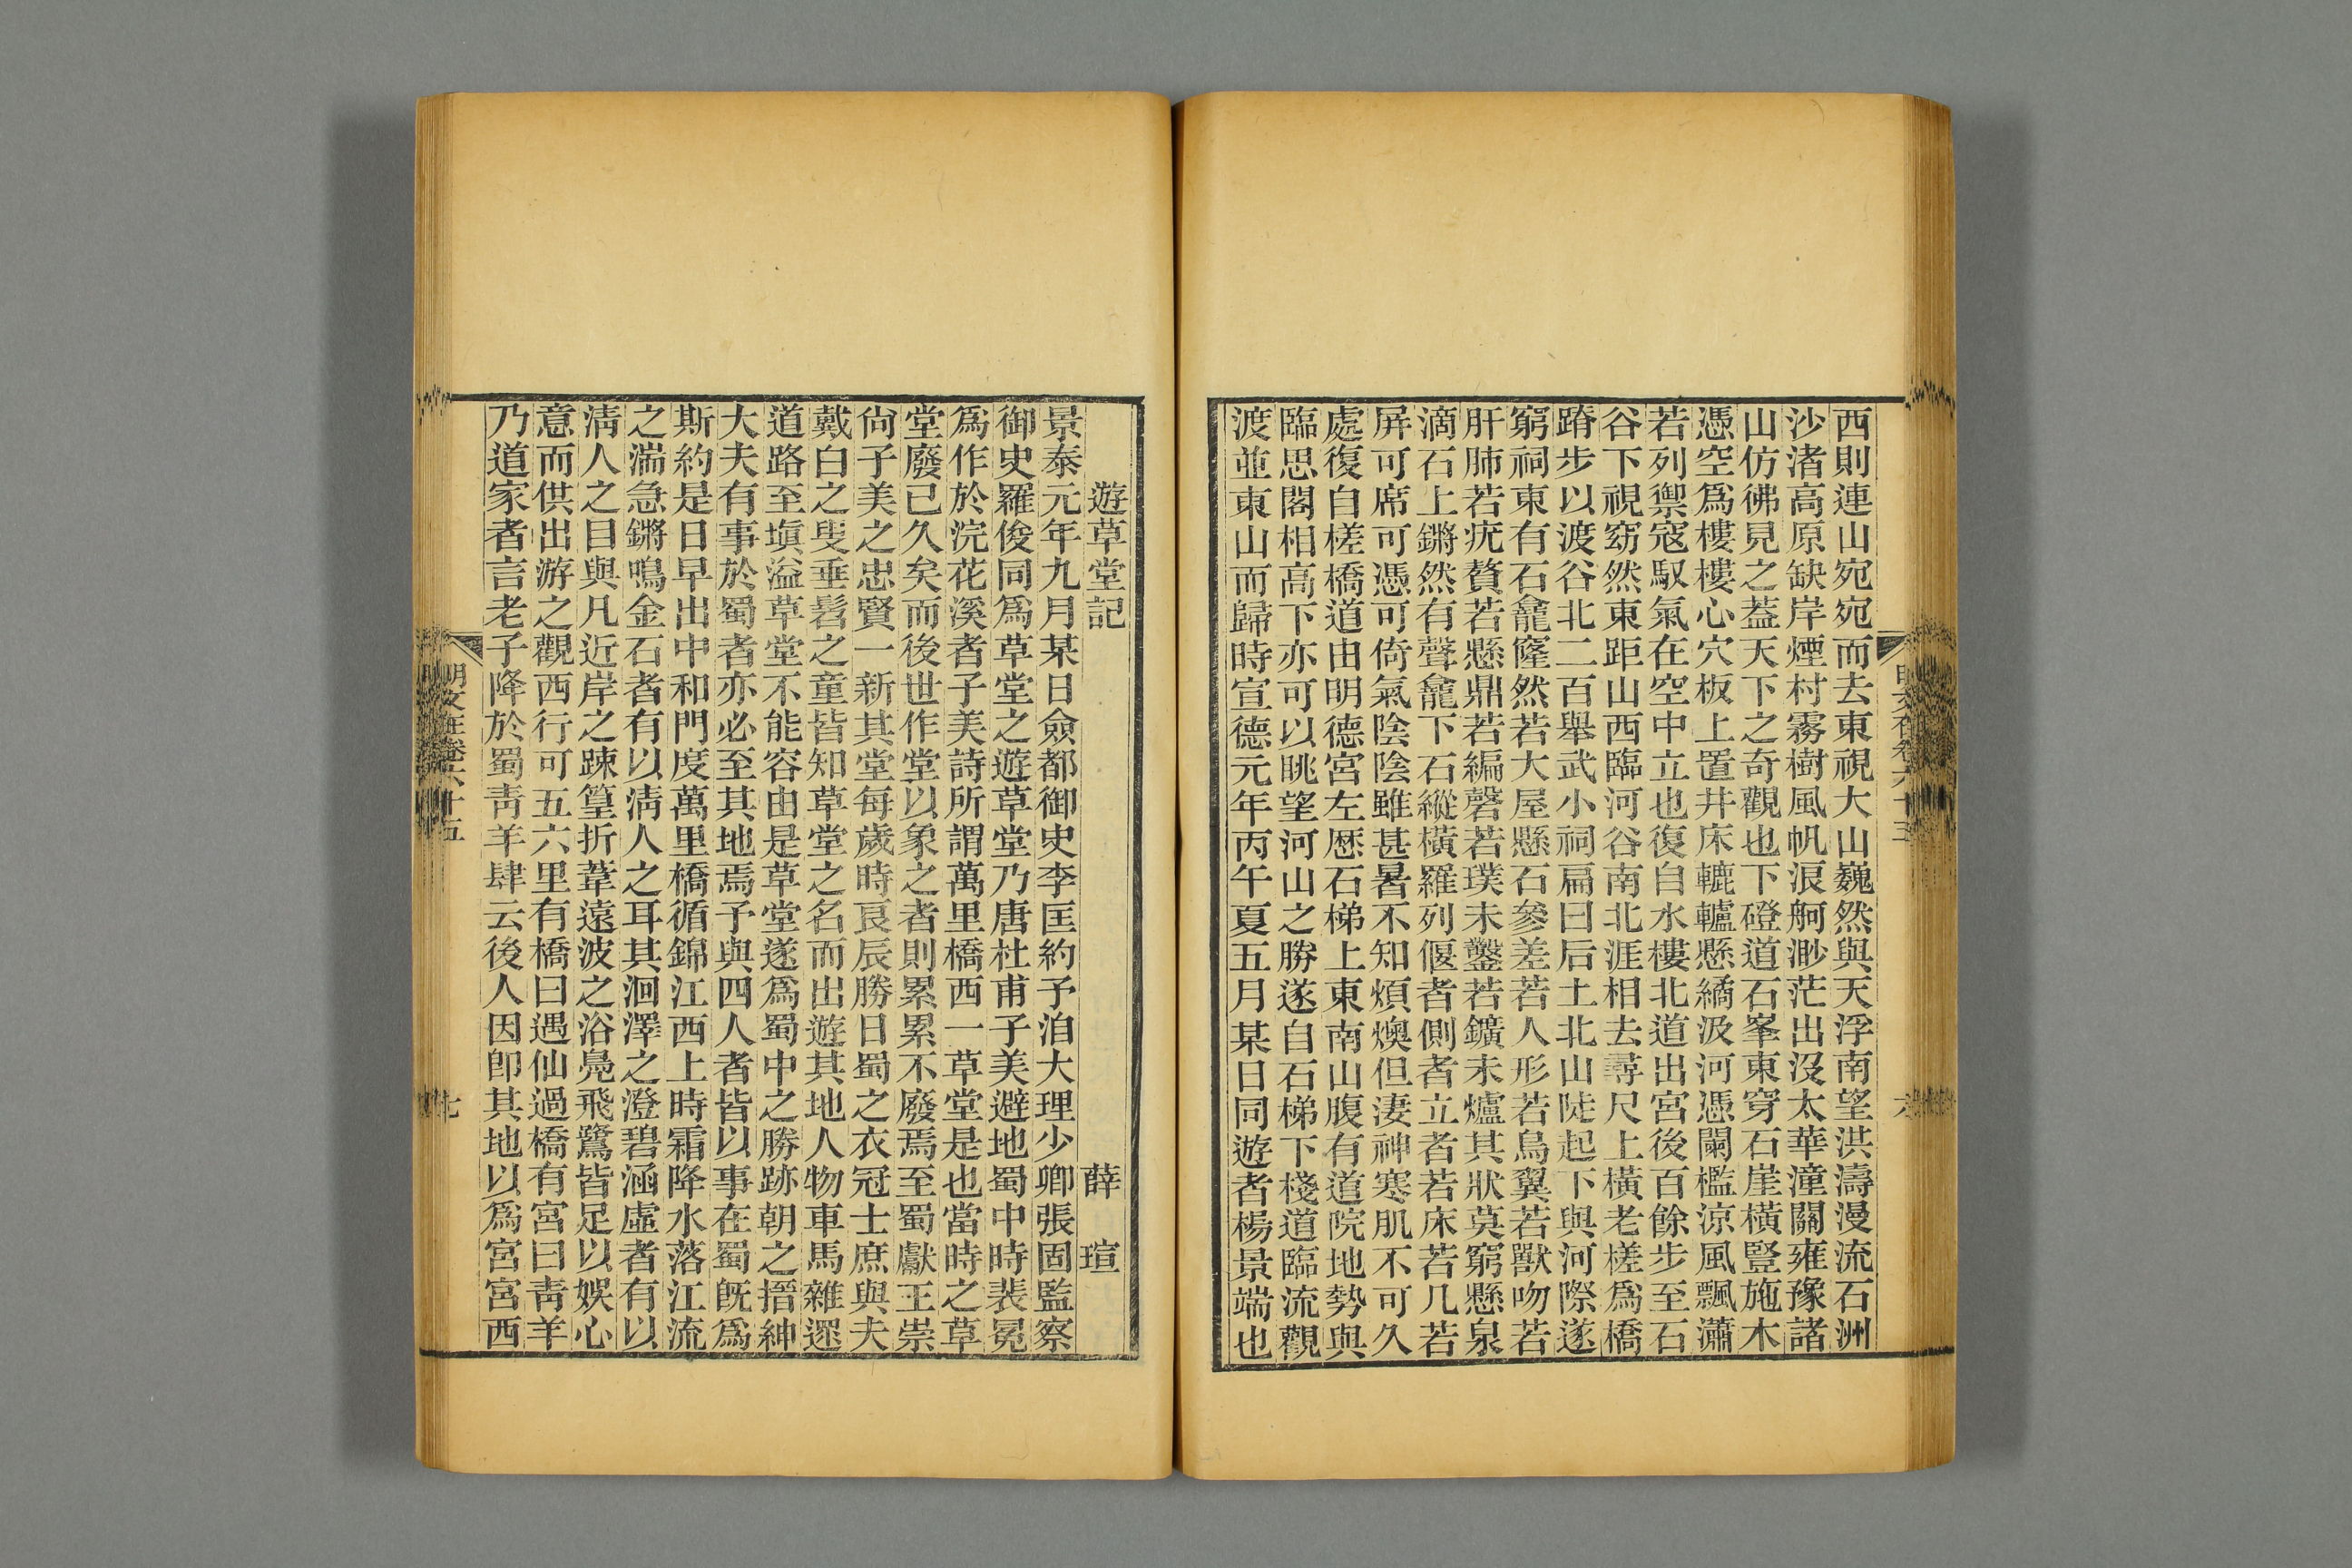 西則連山宛宛而去東視大山巍然與天浮南望洪濤漫流石洲
沙渚高原缺岸煙村霧樹風帆浪舸渺茫出沒太華潼關雍豫諸
山仿彿見之葢天下之奇觀也下磴道石峯東穿石崖橫豎施木
憑空爲樓樓心穴板上置井床轆轤懸繘汲河憑闌檻涼風飄瀟
若列禦寇馭氣在空中立也復自水樓北道出宮後百餘步至石
谷下視窈然東距山西臨河谷南北涯相去尋尺上橫老槎爲橋
蹐步以渡谷北二百舉武小祠扁曰后土北山陡起下與河際遂
窮祠東有石龕窿然若大屋懸石參差若人形若鳥翼若獸吻若
肝肺若疣贅若懸鼎若編磬若璞未鑿若鑛未爐其狀莫窮懸泉
滴石上鏘然有聲龕下石縱橫羅列偃者側者立者若床若几若
屏可席可憑可倚氣陰陰雖甚暑不知煩燠但淒神寒肌不可久
處復自槎橋道由明德宮左歷石梯上東南山腹有道院地勢與
臨思閣相高下亦可以眺望河山之勝遂自石梯下棧道臨流觀
渡並東山而歸時宣德元年丙午夏五月某日同遊者楊景端也
六
遊草堂記 薛 瑄
景泰元年九月某日僉都御史李匡約予洎大理少卿張固監察
御史羅俊同爲草堂之遊草堂乃唐杜甫子美避地蜀中時裴冕
爲作於浣花溪者子美詩所謂萬里橋西一草堂是也當時之草
堂廢已久矣而後世作堂以象之者則累累不廢焉至蜀獻王崇
尙子美之忠賢一新其堂每歲時良辰勝日蜀之衣冠士庶與夫
戴白之叟垂髫之童皆知草堂之名而出遊其地人物車馬雜遝
道路至塡溢草堂不能容由是草堂遂爲蜀中之勝跡朝之搢紳
大夫有事於蜀者亦必至其地焉予與四人者皆以事在蜀旣爲
斯約是日早出中和門度萬里橋循錦江西上時霜降水落江流
之湍急鏘鳴金石者有以淸人之耳其洄澤之澄碧涵虛者有以
淸人之目與凡近岸之踈篁折葦遠波之浴鳧飛鷺皆足以娛心
意而供出游之觀西行可五六里有橋曰遇仙過橋有宮曰靑羊
乃道家者言老子降於蜀靑羊肆云後人因卽其地以爲宮宮西
明文在卷六十五
七